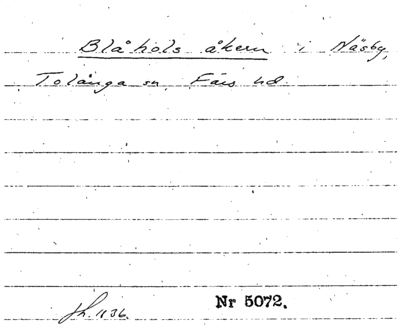 Blåhols åkern i Näsby,
Tolånga sn, Färs hd.
Nr 5072.